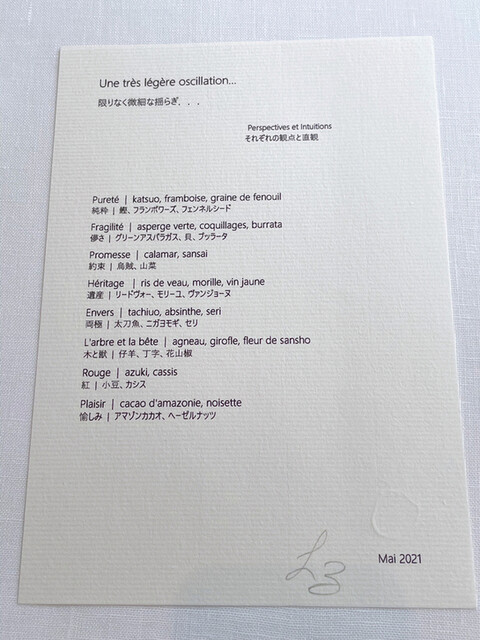 Une très légère oscillation...
限りなく微細な揺らぎ．．．
Perspectives et Intuitions
それぞれの観点と直観
Pureté | katsuo, framboise, graine de fenouil
純粋 | 鰹、フランボワーズ、フェンネルシード
Fragilité | asperge verte, coquillages, burrata
儚さ | グリーンアスパラガス、貝、ブッラータ
Promesse | calamar, sansai
約束 | 烏賊、山菜
Héritage | ris de veau, morille, vin jaune
遺産 | リードヴォー、モリーユ、ヴァンジョーヌ
Envers | tachiuo, absinthe, seri
両極 | 太刀魚、ニガヨモギ、セリ
L'arbre et la bête | agneau, girofle, fleur de sansho
木と獣 | 仔羊、丁字、花山椒
Rouge | azuki, cassis
紅 | 小豆、カシス
Plaisir | cacao d'amazonie, noisette
愉しみ | アマゾンカカオ、ヘーゼルナッツ
Mai 2021